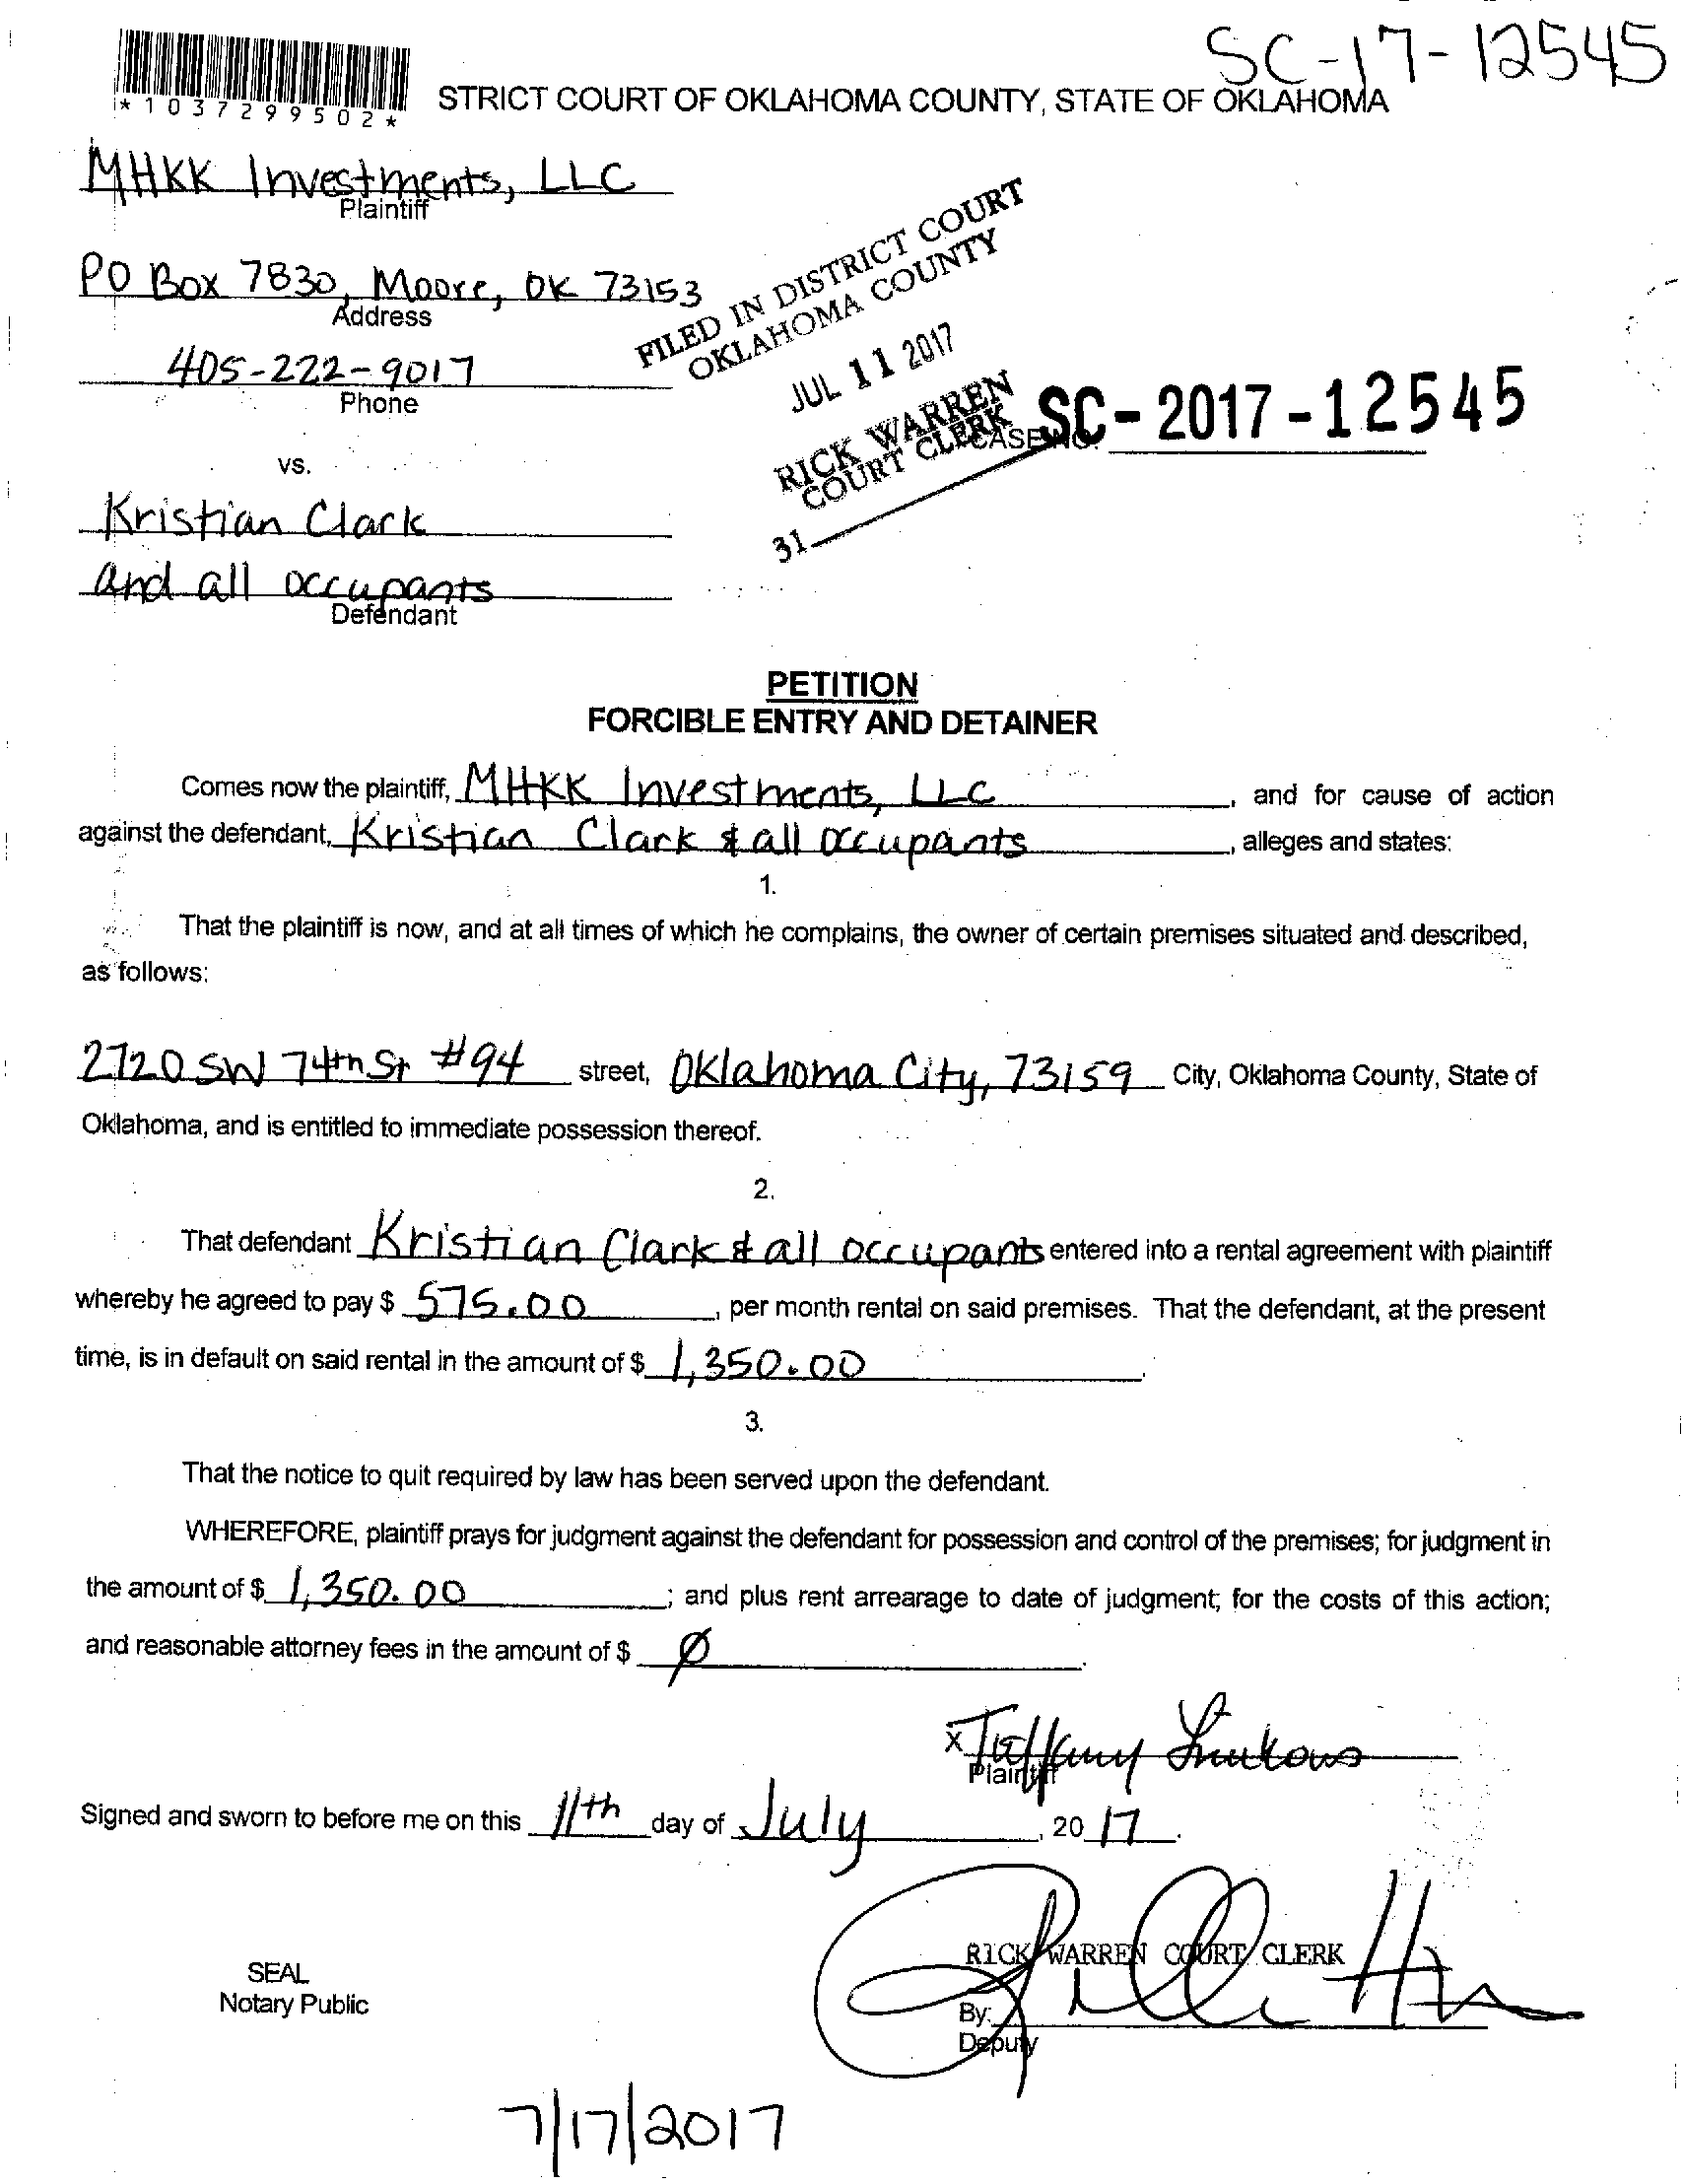 SC-17-12545
*1037299502*
STRICT COURT OF OKLAHOMA COUNTY, STATE OF OKLAHOMA
MHKK Investments, LLC
Plaintiff
PO Box 7830, Moore, OK 73153
Address
405-222-9017
Phone
FILED IN DISTRICT COURT
OKLAHOMA COUNTY
JUL 11 2017
RICK WARREN
COURT CLERK
31
CASE NO. SC-2017-12545
vs.
Kristian Clark
and all occupants
Defendant
PETITION
FORCIBLE ENTRY AND DETAINER
Comes now the plaintiff, MHKK Investments, LLC, and for cause of action
against the defendant, Kristian Clark & all occupants, alleges and states:
1.
That the plaintiff is now, and at all times of which he complains, the owner of certain premises situated and described,
as follows:
2720 SW 74th St #94 street, Oklahoma City, 73159 City, Oklahoma County, State of
Oklahoma, and is entitled to immediate possession thereof.
2.
That defendant Kristian Clark & all occupants entered into a rental agreement with plaintiff
whereby he agreed to pay $ 575.00, per month rental on said premises. That the defendant, at the present
time, is in default on said rental in the amount of $ 1,350.00.
3.
That the notice to quit required by law has been served upon the defendant.
WHEREFORE, plaintiff prays for judgment against the defendant for possession and control of the premises; for judgment in
the amount of $ 1,350.00; and plus rent arrearage to date of judgment; for the costs of this action;
and reasonable attorney fees in the amount of $ Ø.
x Tiffany
Plaintiff
Signed and sworn to before me on this 11th day of July, 2017.
RICK WARREN COURT CLERK
SEAL
Notary Public
By:
Deputy
7/17/2017